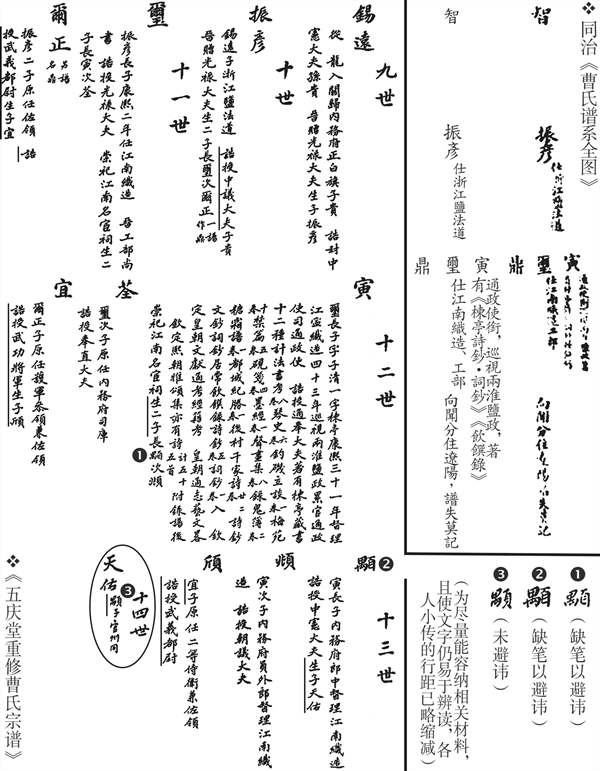 ❖同治《曹氏谱系全图》
智
智
振彥仕浙江鹽法道
振彥 仕浙江鹽法道
寅
璽 仕江南織造工部
鼎
向聞分住遼陽
譜失莫記
寅 通政使銜，巡視兩淮鹽政，著
有《楝亭詩鈔·詞鈔》《飲饌錄》
璽 仕江南織造、工部
鼎
向聞分住遼陽，譜失莫記
❶顒（缺笔以避讳）
❷顒（缺笔以避讳）
❸顒（未避讳）
（为尽量能容纳相关材料，
且使文字仍易于辨读，各
人小传的行距已略缩减）
九世
錫遠
從 龍入關歸內務府正白旗子貴 誥封中
憲大夫孫貴 晉贈光祿大夫生子振彥
十世
振彥
錫遠子浙江鹽法道 誥授中議大夫子貴
晉贈光祿大夫生二子長璽次爾正一譜作鼎
十一世
璽
振彥長子康熙二年任江南織造 晉工部尚
書 誥授光祿大夫 崇祀江南名宦祠生二
子長寅次荃
爾正 另譜名鼎
振彥二子原任佐領 誥
授武義都尉生子宜
十二世
寅
璽長子字子清一字楝亭康熙三十一年督理
江寧織造四十三年巡視兩淮鹽政累官通政
使司通政使 誥授通奉大夫著有楝亭藏書
十二種
文鈔詞鈔居常飲饌錄詩鈔五卷詞鈔一卷 欽
定皇朝文獻通考經籍考 皇朝通志藝文畧
欽定熙朝雅頌集亦有詩
崇祀江南名宦祠生二子長顒❶次頫
荃
璽次子原任內務府司庫
誥授奉直大夫
宜
爾正子原任護軍參領兼佐領
誥授武功將軍生子頎
十三世
❷顒
寅長子內務府郎中督理江南織造
誥授中憲大夫生子天佑
頫
寅次子內務府員外郎督理江南織
造 誥授朝議大夫
頎
宜子原任二等侍衛兼佐領
誥授武義都尉
十四世
天佑
❸顒子官州同
❖《五庆堂重修曹氏宗谱》